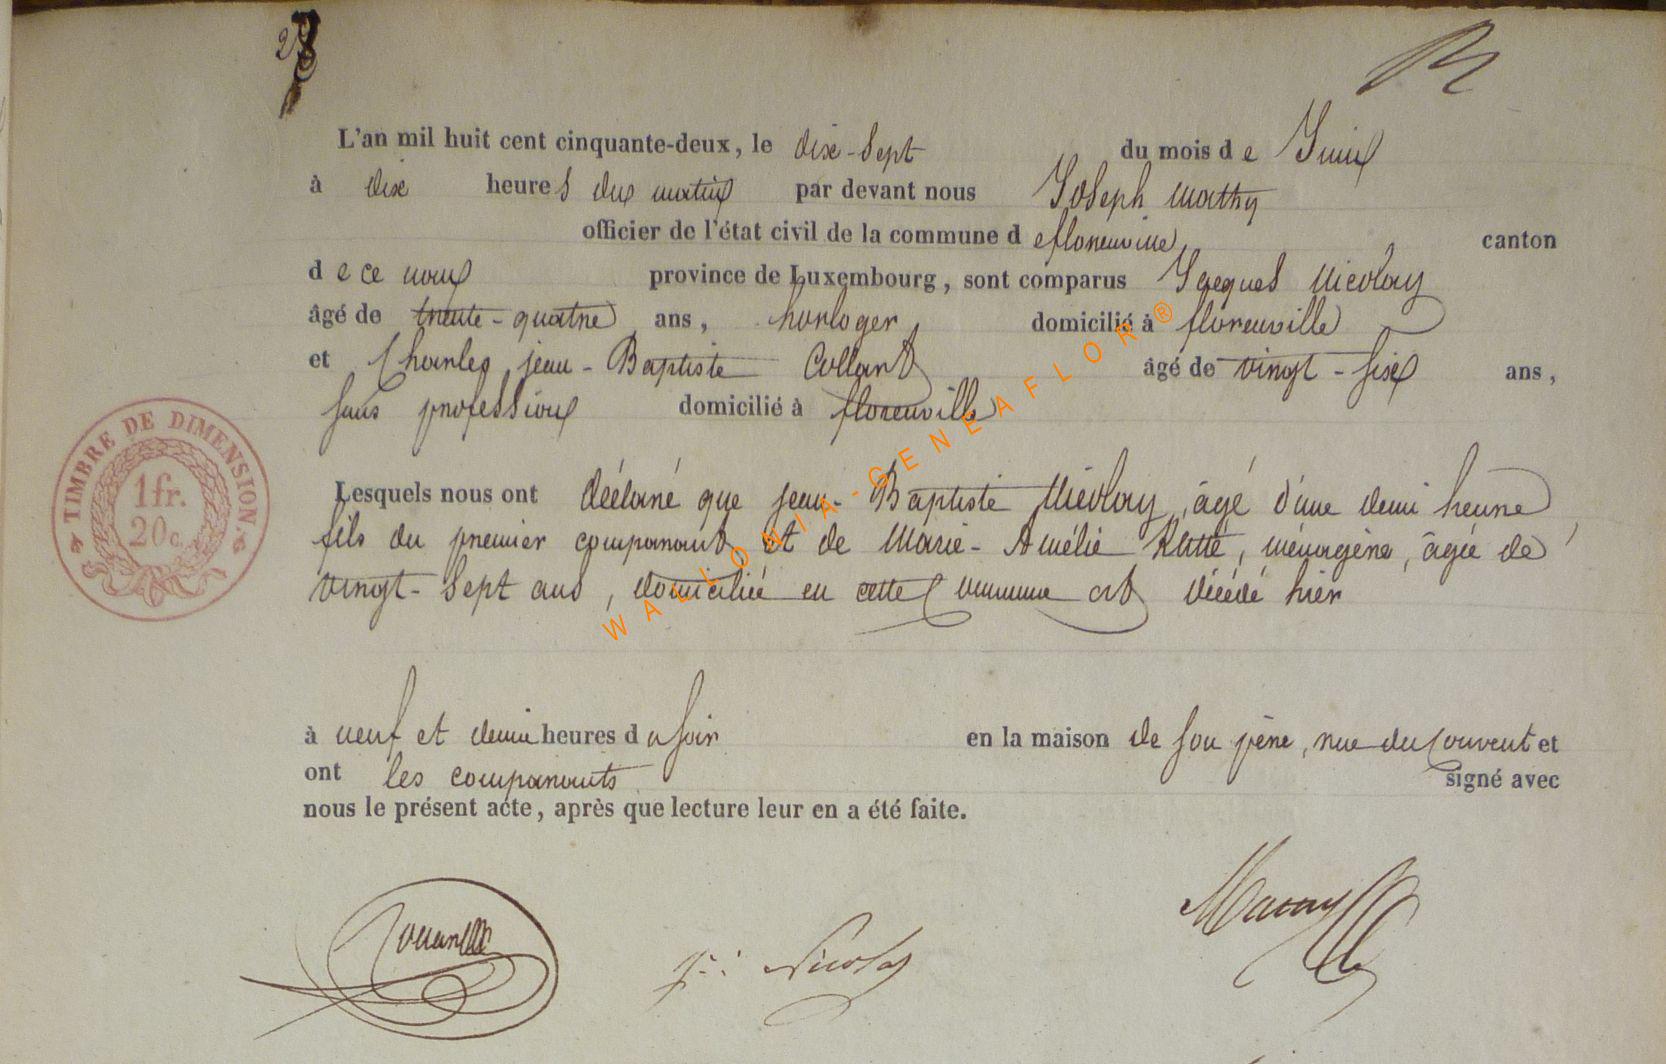 28
L'an mil huit cent cinquante-deux, le dix-sept du mois de Juin
à dix heures du matin par devant nous Joseph Mathy
officier de l'état civil de la commune de florenville canton
de ce nom province de Luxembourg, sont comparus Jacques Nicolay
âgé de trente-quatre ans, horloger domicilié à florenville
et Charles jean-Baptiste Collard âgé de vingt-six ans,
sans profession domicilié à florenville
Lesquels nous ont déclaré que jean-Baptiste Nicolay, âgé d'une demi heure
fils du premier comparant et de Marie-Amélie, ménagère, âgée de
vingt-sept ans, domiciliée en cette Commune est décédé hier
à neuf et demie heures du soir en la maison de son père, rue du Couvent et
ont les comparants signé avec
nous le présent acte, après que lecture leur en a été faite.
Nicolay
Mathy
TIMBRE DE DIMENSION
1 fr.
20 c.
WALLONIA-GENEAFLOR®